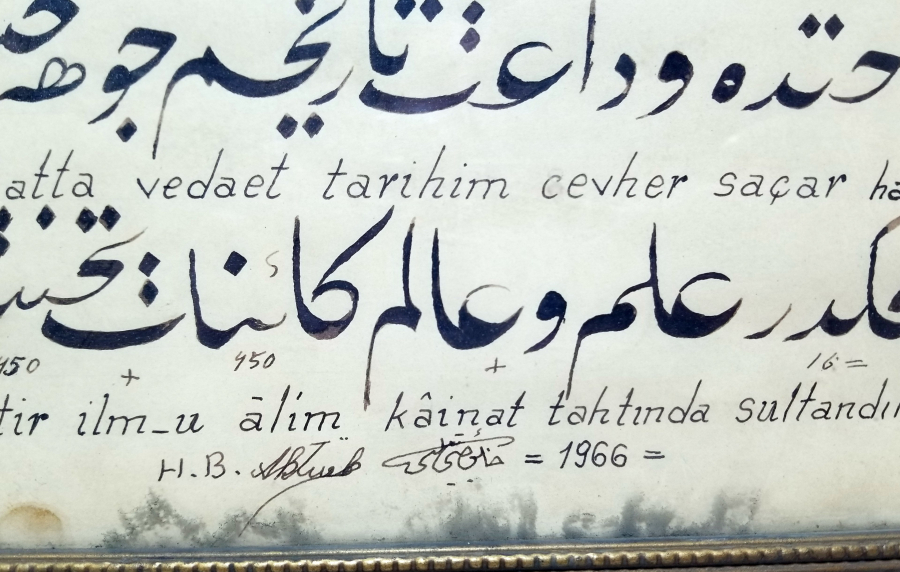 حتده وداعت تاريخم جو
atta vedaet tarihim cevher saçar ha
در علم و عالم كائنات تختـ
450 + 450 + 16 =
tir ilm_u ālim kâinat tahtında sultandır
H.B. = 1966 =